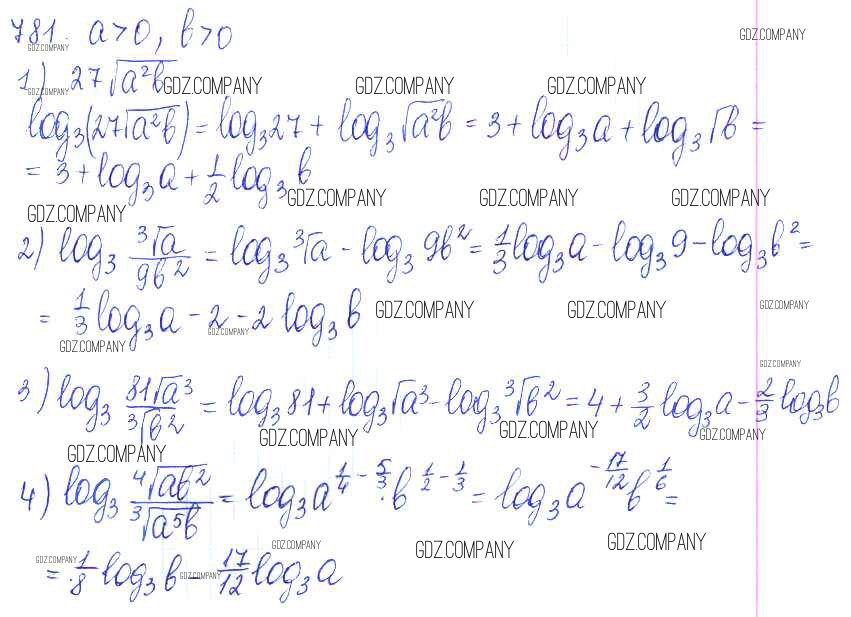 781. a>0, b>0
GDZ.COMPANY GDZ.COMPANY
1) 27√(a²b)
GDZ.COMPANY GDZ.COMPANY GDZ.COMPANY GDZ.COMPANY
log₃(27√(a²b)) = log₃27 + log₃√(a²b) = 3 + log₃a + log₃√b =
= 3 + log₃a + 1/2 log₃b
GDZ.COMPANY GDZ.COMPANY GDZ.COMPANY
GDZ.COMPANY
2) log₃ ³√a/9b² = log₃ ³√a - log₃ 9b² = 1/3 log₃a - log₃9 - log₃b² =
= 1/3 log₃a - 2 - 2 log₃b
GDZ.COMPANY GDZ.COMPANY GDZ.COMPANY
GDZ.COMPANY
GDZ.COMPANY
GDZ.COMPANY
3) log₃ 81√a³/³√b² = log₃81 + log₃√a³ - log₃ ³√b² = 4 + 3/2 log₃a - 2/3 log₃b
GDZ.COMPANY GDZ.COMPANY GDZ.COMPANY
GDZ.COMPANY
4) log₃ ⁴√(ab²)/³√(a⁵b) = log₃a^(1/4 - 5/3) · b^(1/2 - 1/3) = log₃a^(-17/12) b^(1/6) =
GDZ.COMPANY GDZ.COMPANY GDZ.COMPANY
GDZ.COMPANY
= 1/8 log₃b - 17/12 log₃a
GDZ.COMPANY